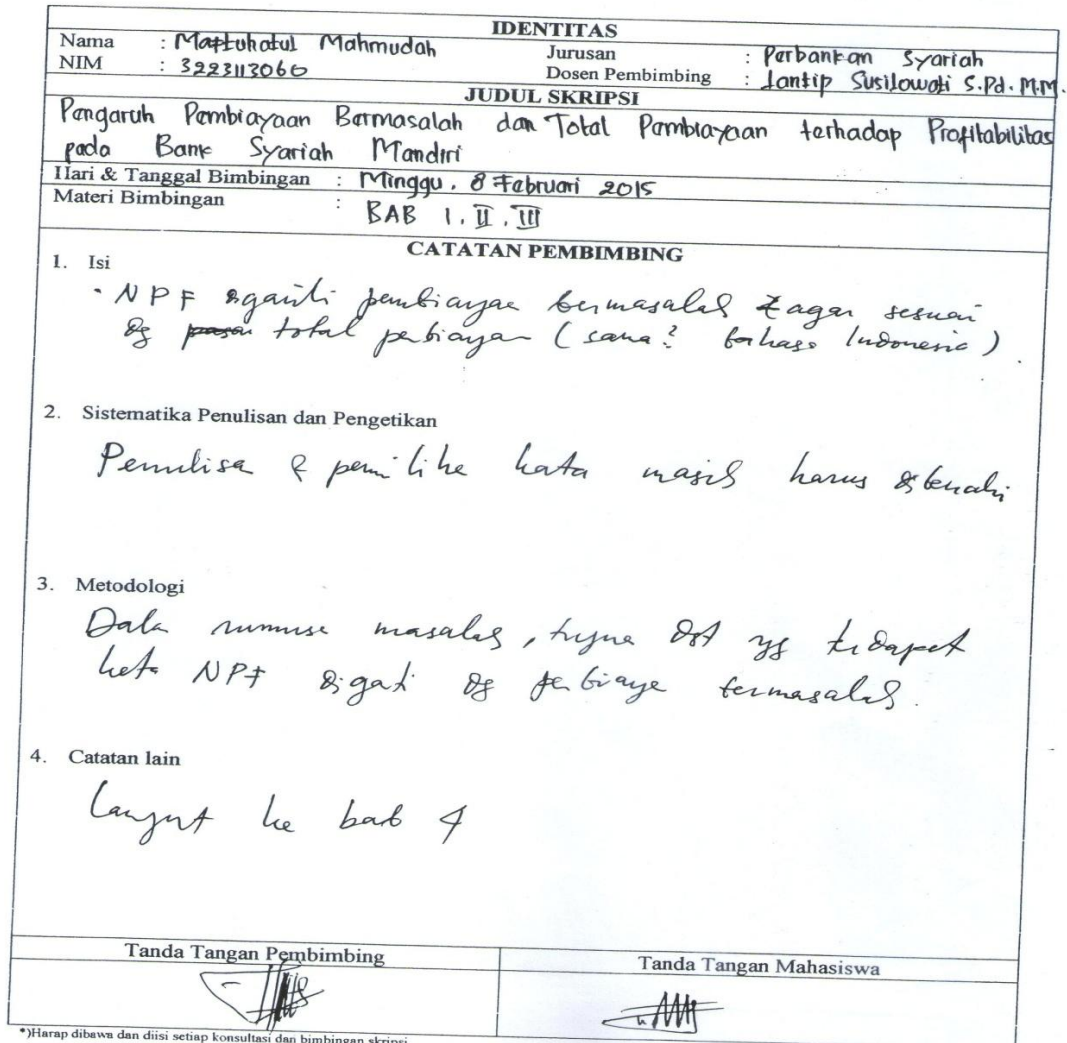 IDENTITAS
Nama : Maftuhatul Mahmudah Jurusan : Perbankan Syariah
NIM : 3223113060 Dosen Pembimbing : Lantip Susilowati S.Pd. M.M.
JUDUL SKRIPSI
Pengaruh Pembiayaan Bermasalah dan Total Pembiayaan terhadap Profitabilitas
pada Bank Syariah Mandiri
Hari & Tanggal Bimbingan : Minggu, 8 Februari 2015
Materi Bimbingan : BAB I, II, III
CATATAN PEMBIMBING
1. Isi
• NPF diganti pembiayaan bermasalah agar sesuai
dg total pembiayaan (sama² bahasa Indonesia).
2. Sistematika Penulisan dan Pengetikan
Penulisan & pemilihan kata masih harus dibenahi
3. Metodologi
Dalam rumusan masalah, tujuan dst yg terdapat
kata NPF diganti dg pembiayaan bermasalah.
4. Catatan lain
Lanjut ke bab 4
Tanda Tangan Pembimbing Tanda Tangan Mahasiswa
*)Harap dibawa dan diisi setiap konsultasi dan bimbingan skripsi